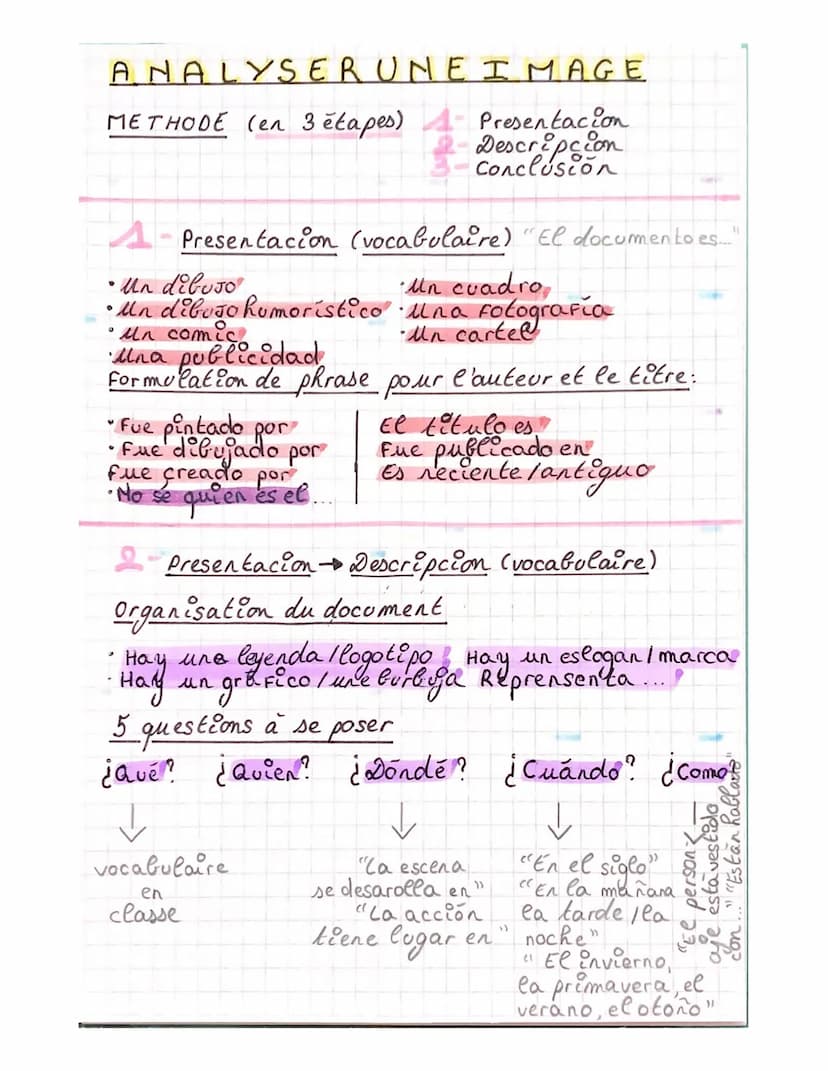 ANALYSER UNE IMAGE
METHODE (en 3 étapes) 1- Presentacion
2- Descripcion
3- Conclusión
1- Presentacion (vocabulaire) "El documento es..."
• Un dibujo
• Un dibujo humorístico
• Un comic
• Una publicidad
• Un cuadro
• Una fotografía
• Un cartel
Formulation de phrase pour l'auteur et le titre:
• Fue pintado por
• Fue dibujado por
Fue creado por
• No sé quien es el ...
El título es
Fue publicado en
Es reciente/antiguo
2- Presentacion → Descripcion (vocabulaire)
Organisation du document
• Hay una leyenda/logotipo ! Hay un eslogan/marca
• Hay un gráfico/une burbuja Reprensenta ...!
5 questions à se poser
¿Qué? ¿Quien? ¿Dóndé? ¿Cuándo? ¿Como
vocabulaire
en
classe
"La escena
se desarolla en"
"La acción
tiene lugar en"
"En el siglo"
"En la mañana
la tarde/la
noche"
" El invierno,
la primavera, el
verano, el otoño"
"El person-
aje está vestido
con..." "Están hablando"